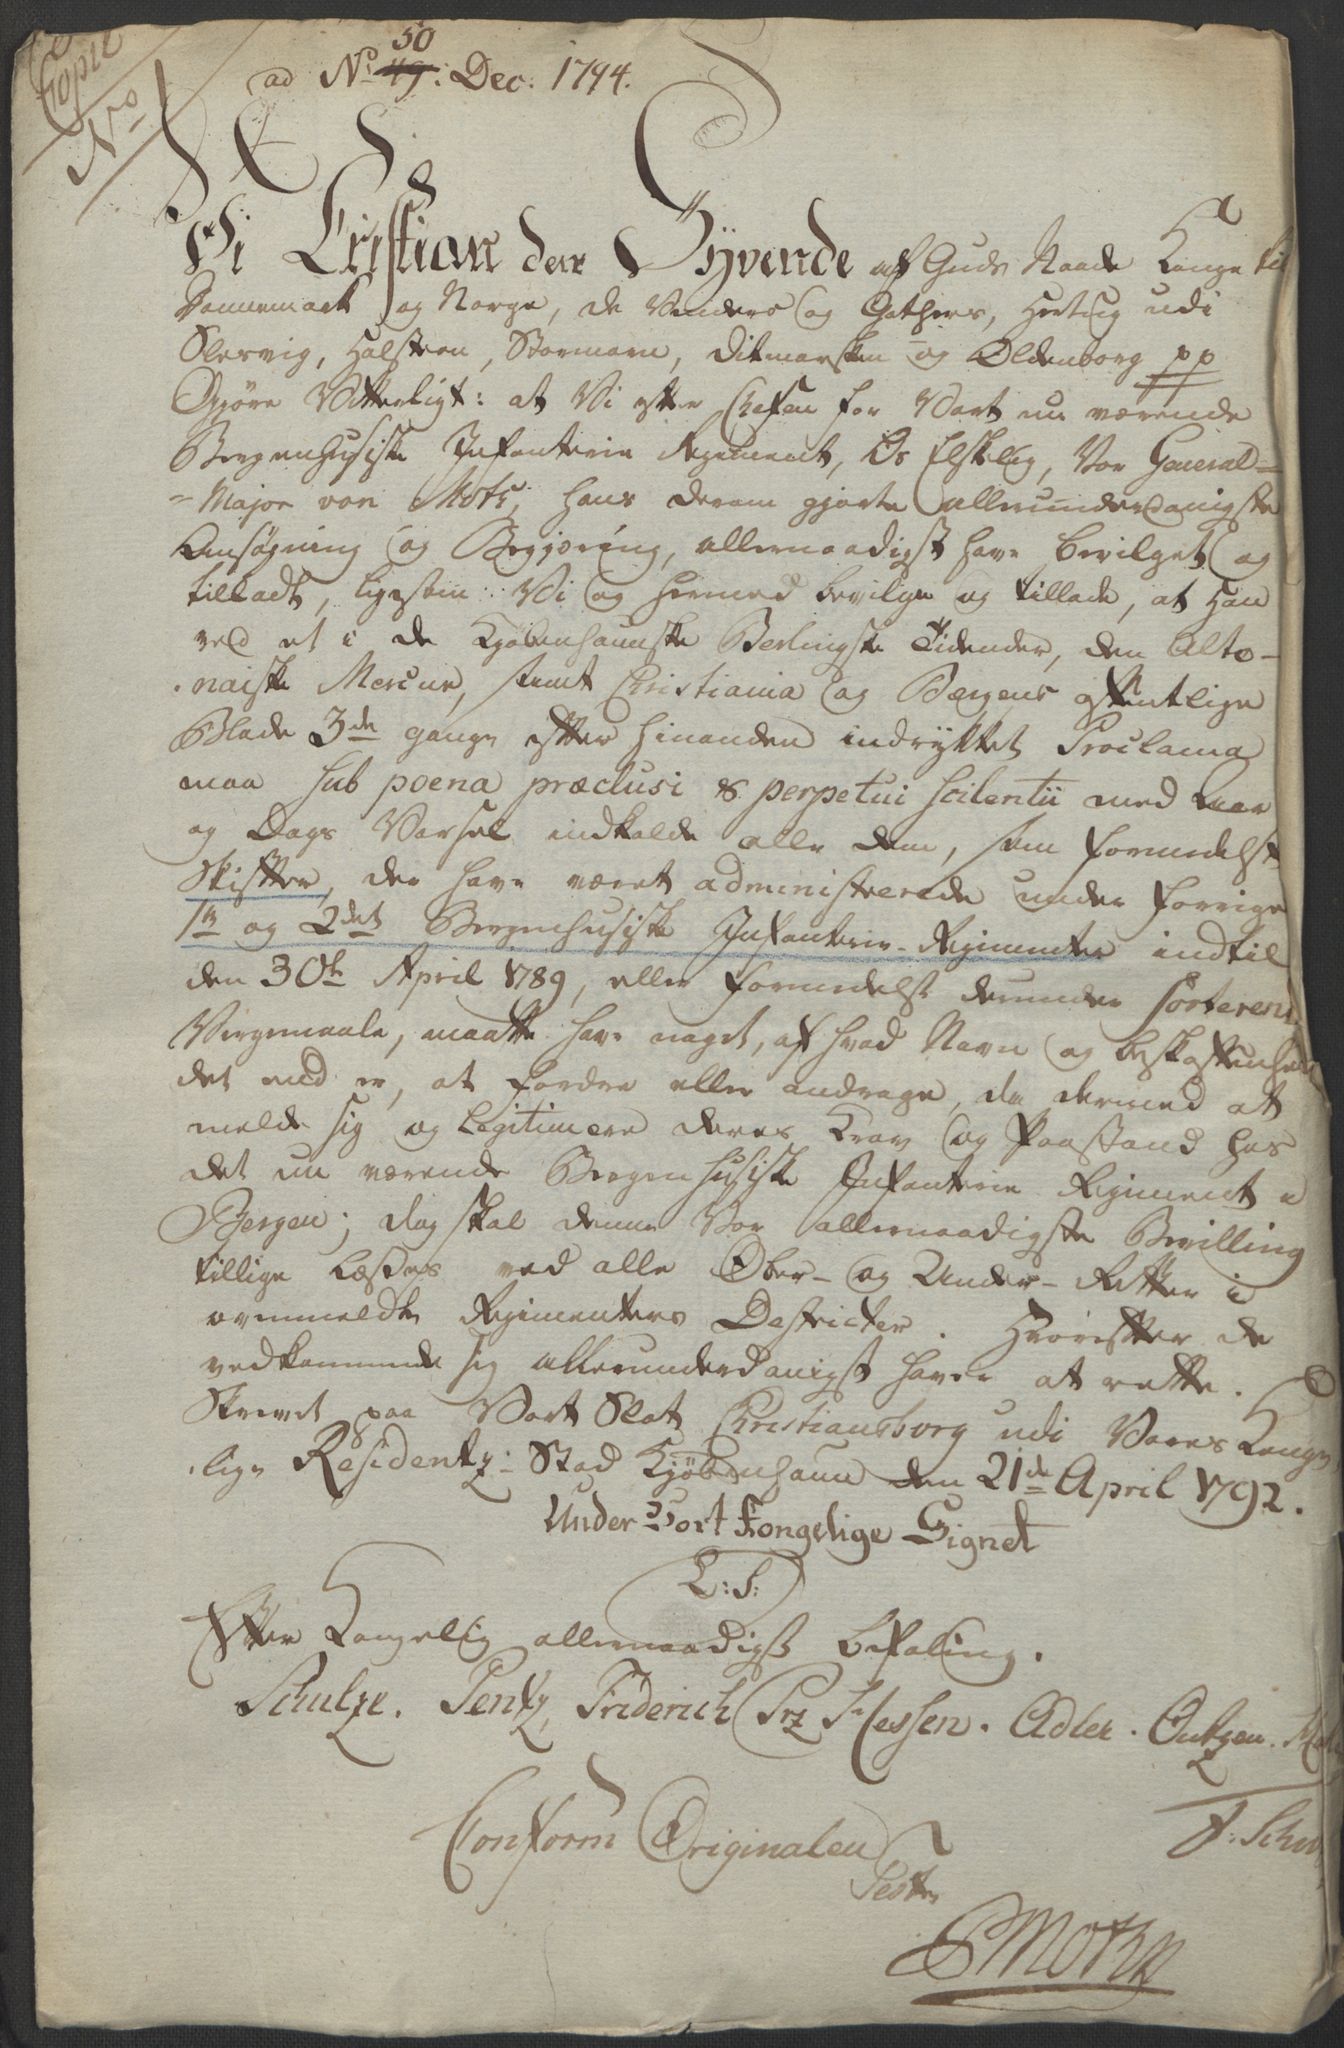 Copie
No
50
ad No 49: Dec: 1794.
Vi Cristian den Syvende af Guds Naade Konge til
Dannemark og Norge, de Venders og Gothers, Hertug udi
Slesvig, Holsteen, Stormarn, Ditmarsken og Oldenborg pp
Giøre Vitterligt: at Vi efter Chefen for Vort nu værende
Bergenhusiske Infanterie Regiment, Os Elskelig, Vor General-
-Major von Motz, hans derom gjorte allerunderdanigste
Ansøgning og Begjæring, allernaadigst have bevilget og
tilladt, ligesom Vi og hermed bevilge og tillade, at Han
ved et i de Kjøbenhavnske Berlingske Tidender, den Alto-
naiske Mercur, samt Christiania og Bergens offentlige
Blade 3de gange efter hinanden indrykket Proclama
maa sub poena præclusi & perpetui scilentii med Aar
og Dags Varsel indkalde alle dem, som formedelst
Skifter, der have været administrerede under forrige
1te og 2det Bergenhusiske Infanterie-Regimenter indtil
den 30te April 1789, eller formedelst derunder sorterende
Vergemaale, maatte have noget, af hvad Navn og beskaffenhed
det end er, at fordre eller andrage, da dermed at
melde sig og Legitimere deres Krav og Paastand hos
det nu værende Bergenhusiske Infanterie Regiment i
Bergen; dog skal denne Vor allernaadigste Bevilling
tillige læses ved alle Ober- og Under-Retter i
ovenmeldte Regimenters Districter. Hvorefter de
vedkommende sig allerunderdanigst haver at rette.
Skrevet paa Vort Slot Christiansborg udi Vores Konge-
lige Residentz-Stad Kjøbenhavn den 21de April 1792.
Under Vort Kongelige Signet
L: S:
Efter Kongelig allernaadigst befaling.
Schulze. Pentz, Friderich Prz Hessen. Adler. Outzen.
F: Schw
Conform Originalen
Test
Motz